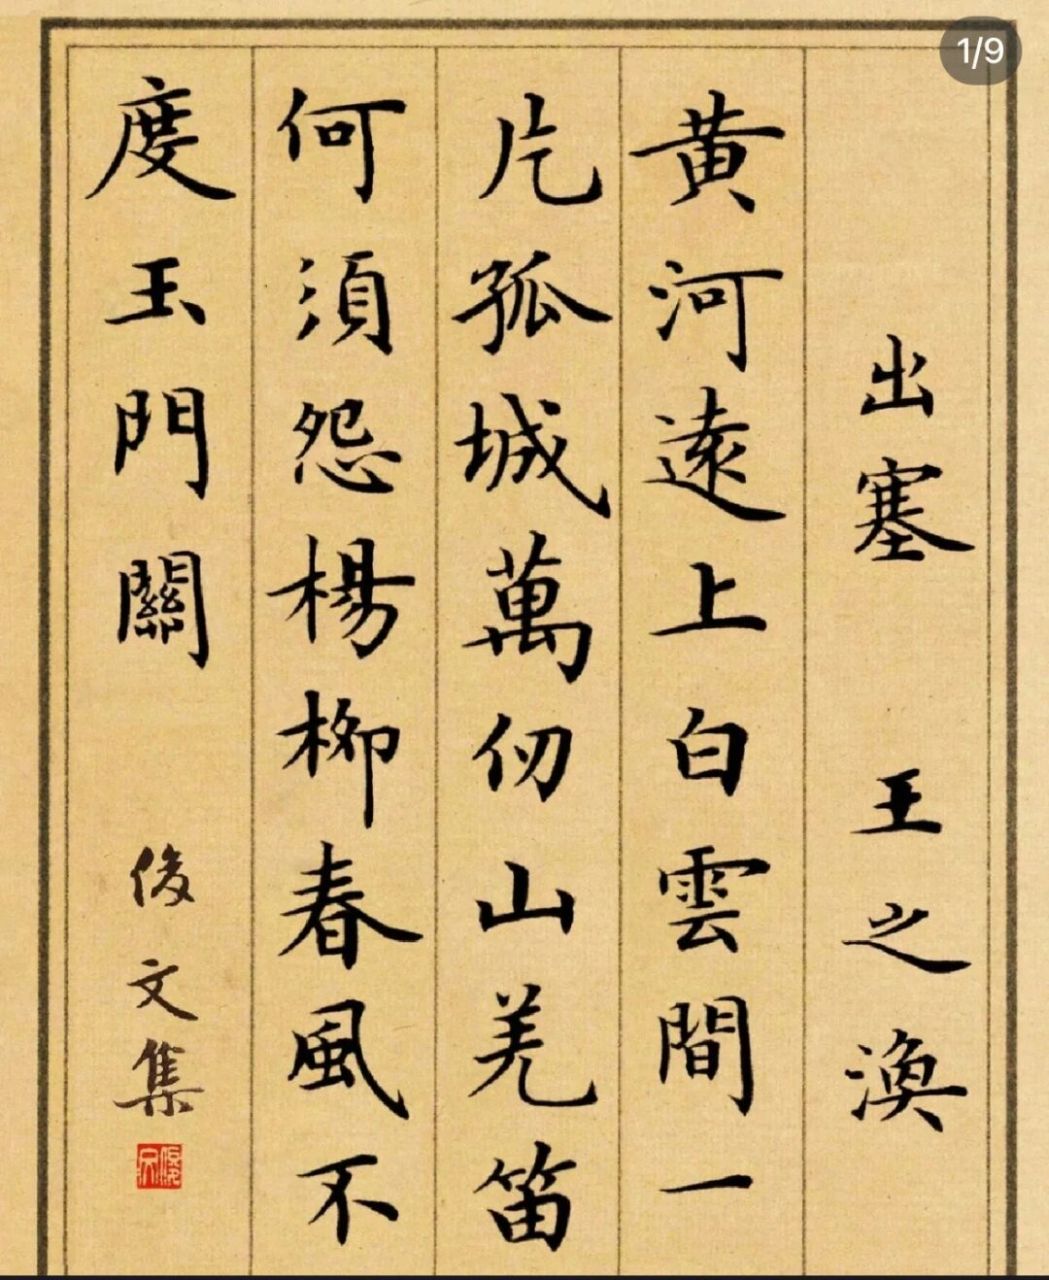 出塞 王之渙
黄河遠上白雲間一
片孤城萬仞山羌笛
何須怨楊柳春風不
度玉門關 俊文集
1/9